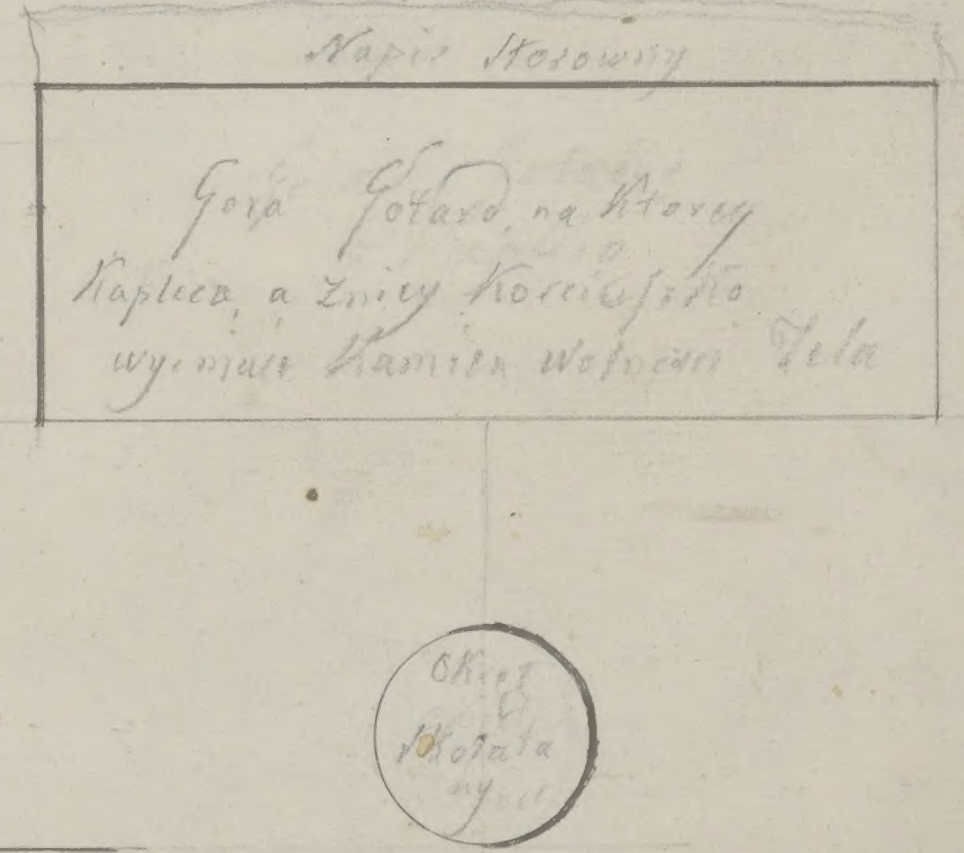 Napis stosowny
Gora Gotard, na Ktorey
Kaplica, a Zniey Kosciuszko
wyimuie Kamien Wolnosci Tela
Okręt
skołata
ny